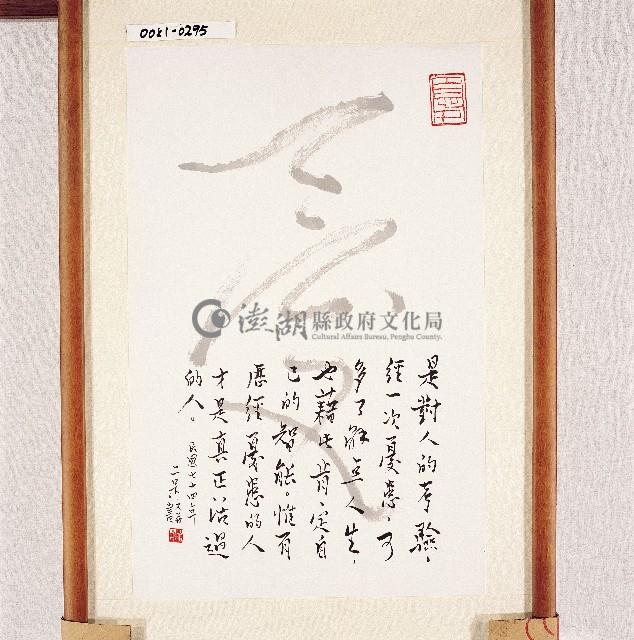 0081-0295
憂
是對人的考驗,
經一次憂患,可
多了解点人生,
也藉此肯定自
己的智能。惟有
歷經憂患的人
才是真正活過
的人。
民國七十四年
二呆
澎湖縣政府文化局
Cultural Affairs Bureau, Penghu County.